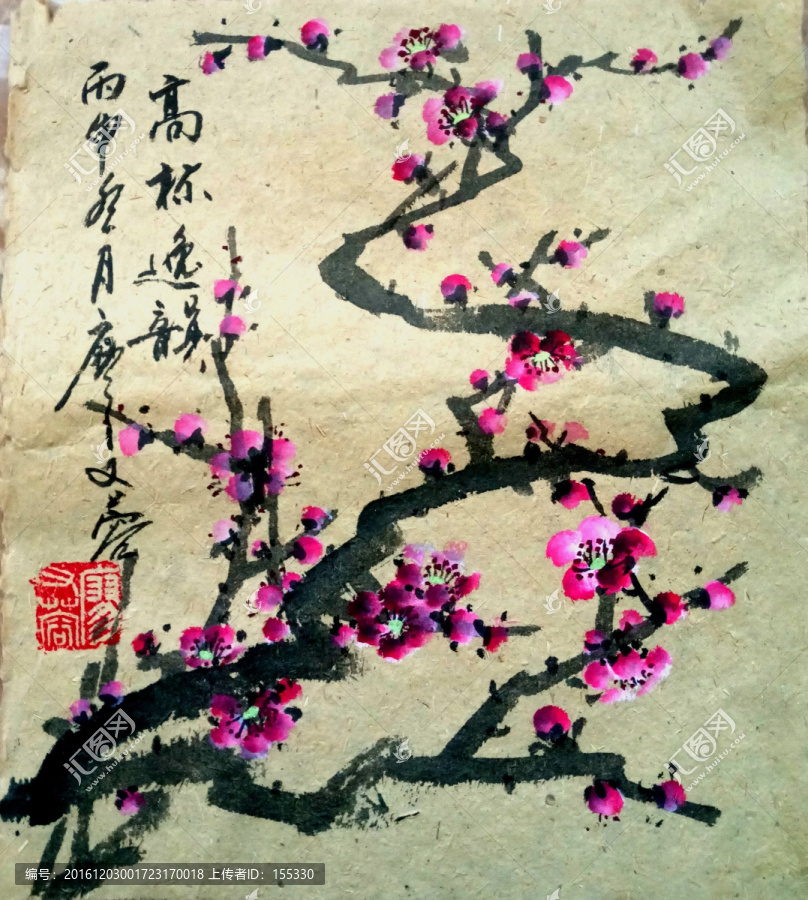 高标逸韻
丙申冬月
汇图网
www.huitu.com
编号：20161203001723170018 上传者ID：155330